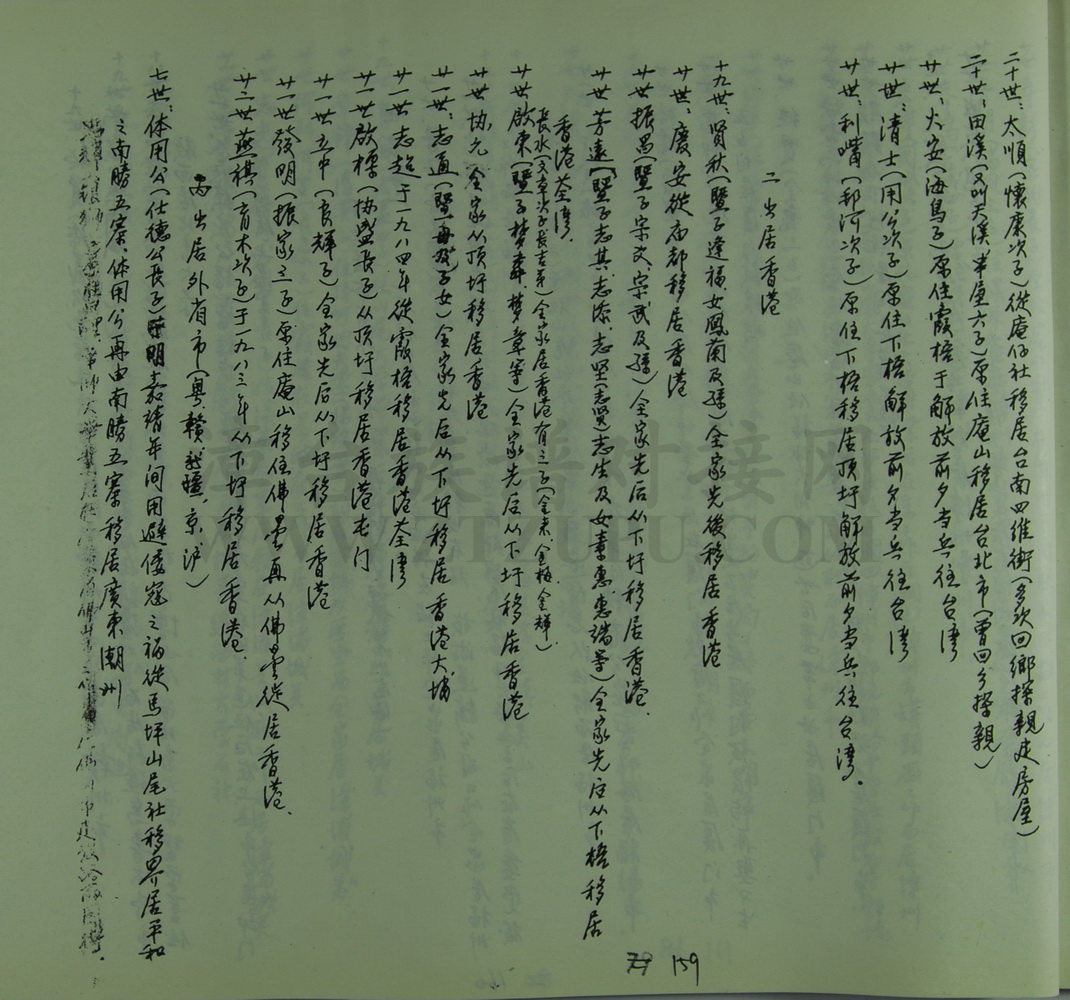 二十世:太順(懷康次子)從庵仔社移居台南四維街(多次回鄉探親建房屋)
二十世:田溪(又叫天溪,半屋六子)原住庵山移居台北市(曾回乡探親)
廿世:火安(海鳥子)原住霞梧于解放前夕当兵往台湾
廿世:清士(用公次子)原住下梧解放前夕当兵往台湾
廿世:利嘴(郝河次子)原住下梧移居顶圩解放前夕当兵往台湾。
二 出居香港
十九世:賢秋(暨子逢福、女鳳蘭及孫)全家先後移居香港
廿世:慶安從南部移居香港
廿世 振昌(暨子宗文、宗武及孫)全家先后从下圩移居香港.
廿世 芳遠(暨子志其、志添、志坚(志贤)志生及女素惠、惠端等)全家先后从下梧移居
香港荃湾.
長水(文章次子長吉弟)全家居香港有三子(金来、金梅、金辉)
廿世 啟東(暨子梦、梦章等)全家先后从下圩移居香港
廿世 协允 全家从顶圩移居香港
廿一世:志通(暨母及子女)全家先后从下圩移居香港大埔
廿一世 志超 于一九八四年從霞梧移居香港荃湾
廿一世 啟標(协盛長子)从顶圩移居香港屯门
廿一世 五中(良輝子)全家先后从下圩移居香港
廿一世 發明(振家三子)原住庵山移住佛曇再从佛曇徙居香港.
廿二世 燕棋(育木次子)于一九八三年从下圩移居香港.
丙 出居外省市(粤、赣、新疆、京、沪)
七世:体用公(仕德公長子)明嘉靖年间用避倭寇之祸從馬坪山尾社移界居平和
之南勝五寨、体用公再由南勝五寨移居廣東潮州
159